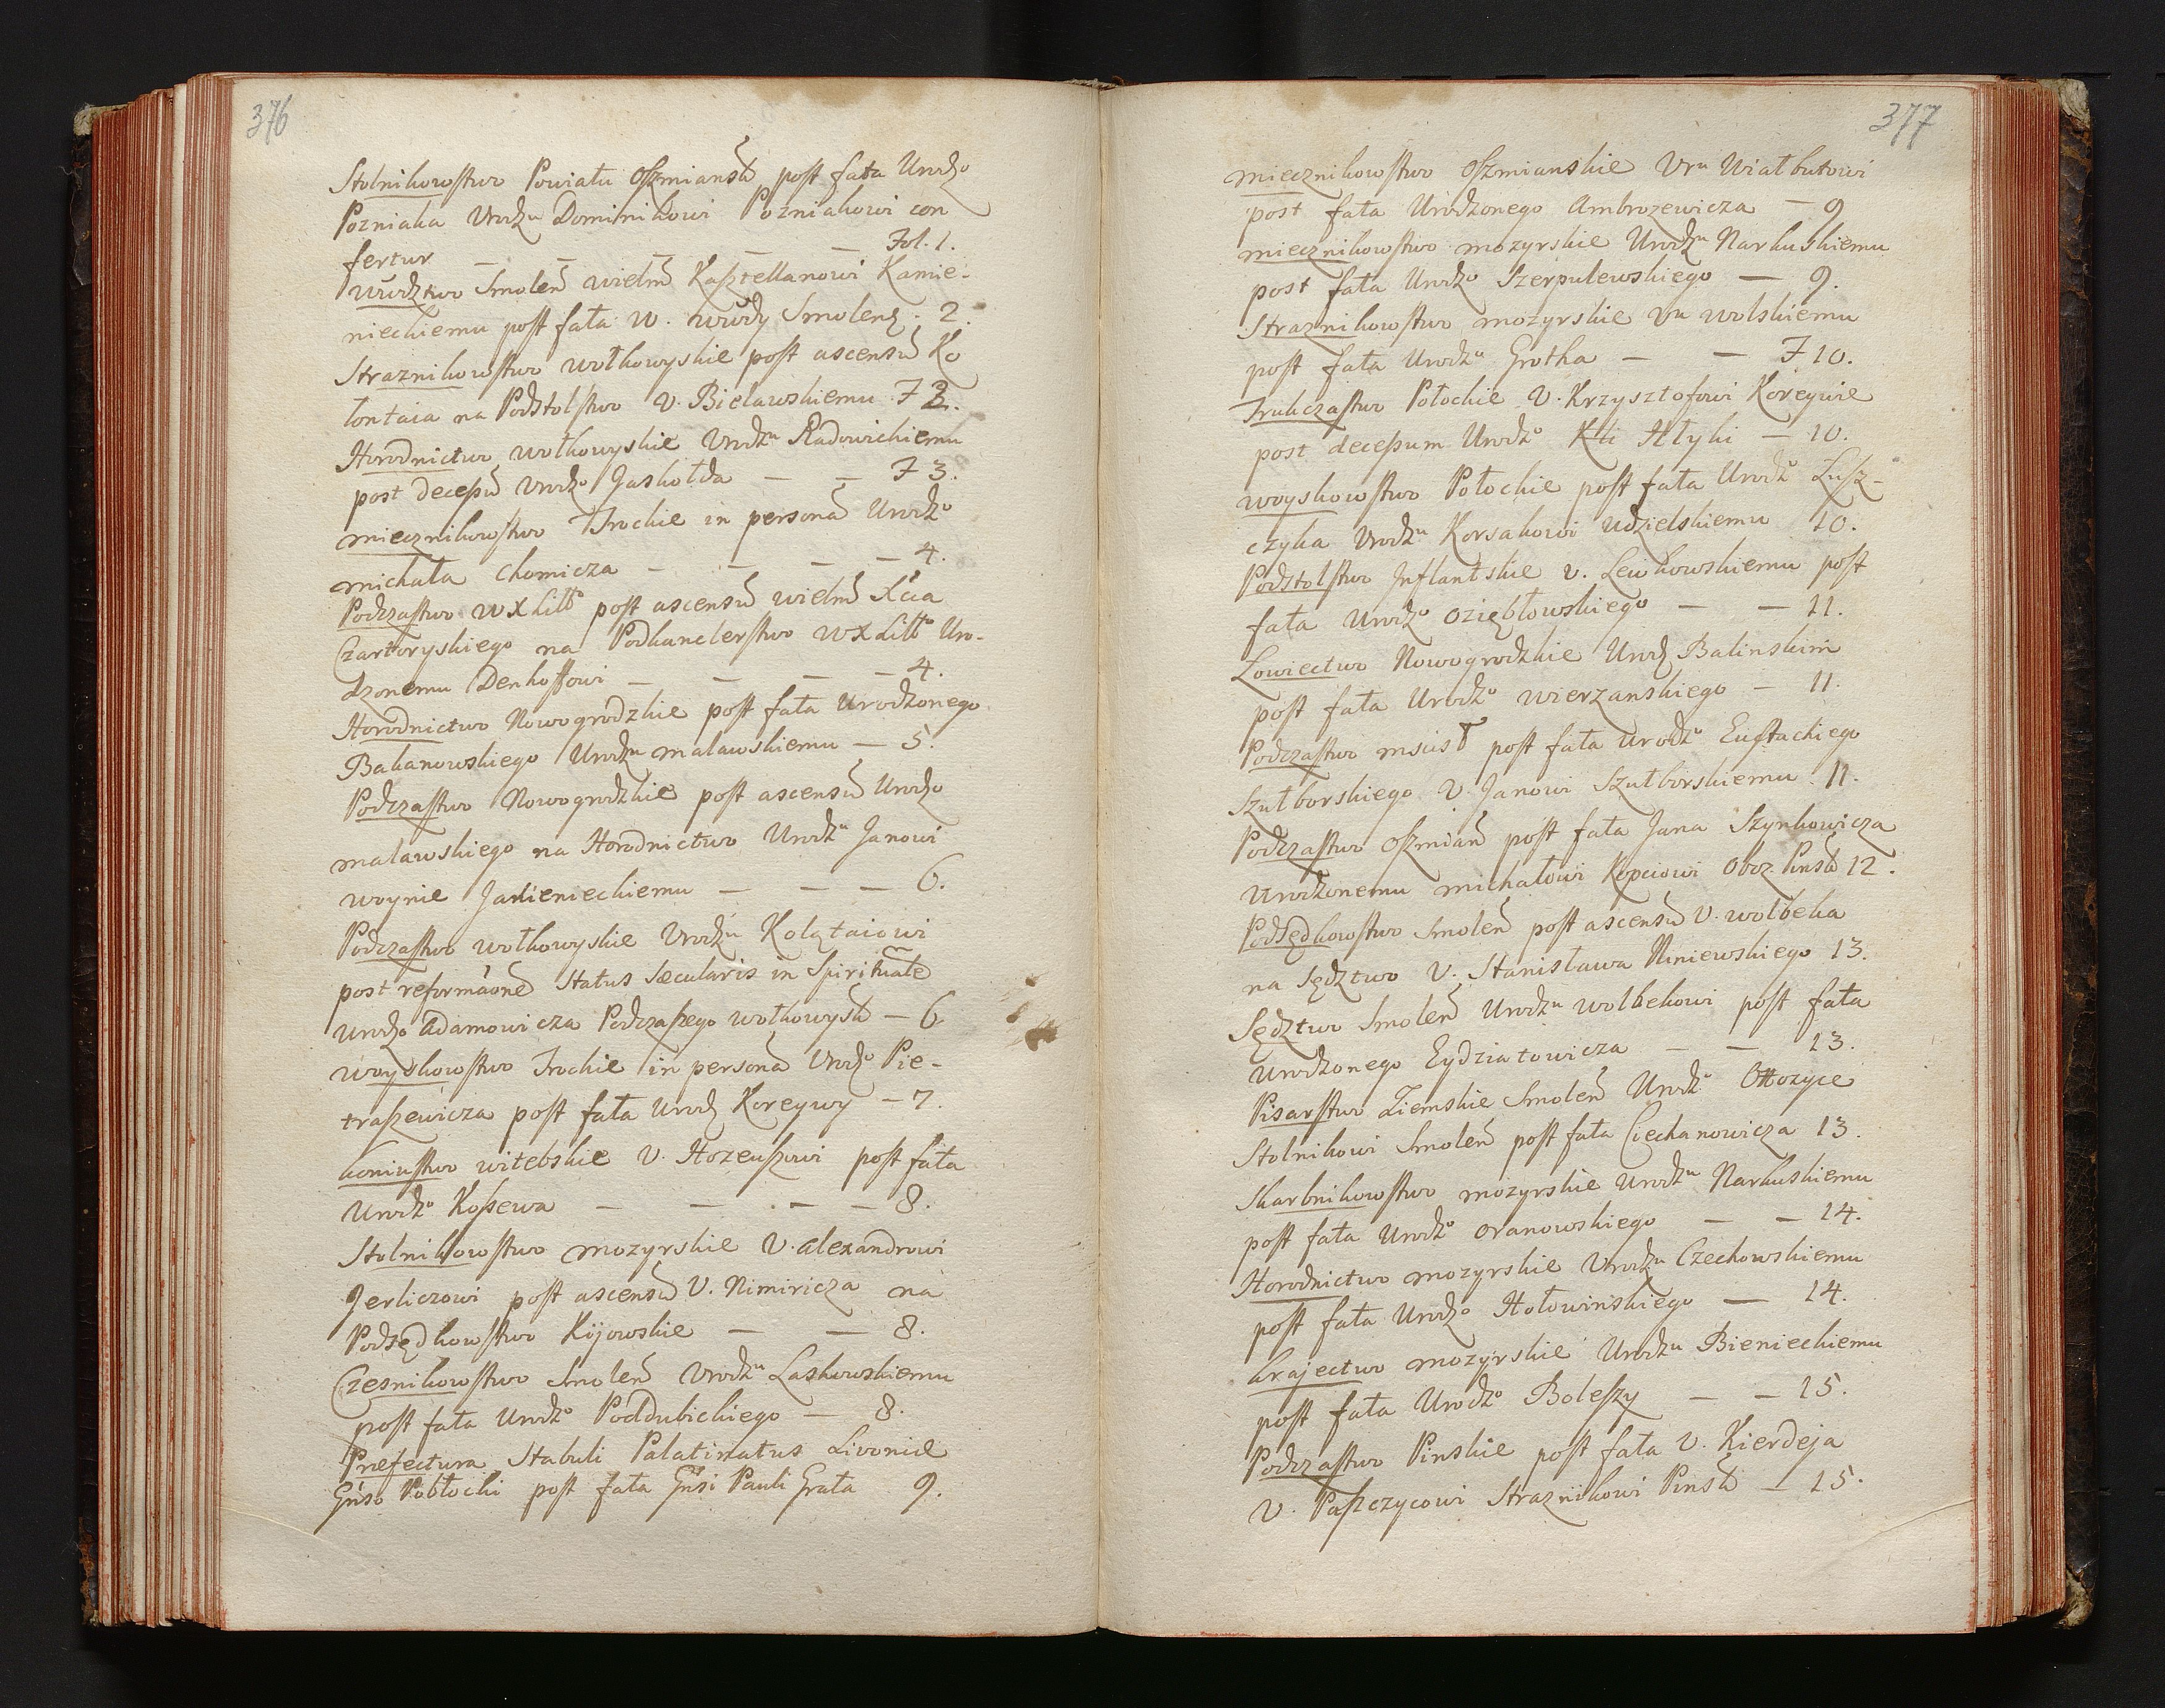 376
Stolnikowstwo Powiatu Oszmiansk post fata Urodzo
Pozniaka Urodzu Dominikowi Pozniakowi con
fertur — — — — Fol. 1.
Wwdztwo Smoleń wielm Kasztellanowi Kamie-
nieckiemu post fata W. Wwdy Smoleń. 2.
Straznikowstwo wołkowyskie post ascensu Ko
łontaia na Podstolstwo U. Bielawskiemu F 2.
Horodnictwo wołkowyskie Urodzu Radowickiemu
post decessu Urodzo Jaskołda — — F 3.
miecznikowstwo Trockie in persona Urodzo
michała Chomicza — — — — 4.
Podczastwo W X Litto post ascensu wielm Xcia
Czartoryskiego na Podkanclerstwo W X Litto Uro-
dzonemu Denhoffowi — — — — 4.
Horodnictwo Nowogrodzkie post fata Urodzonego
Bakanowskiego Urodzu malawskiemu — 5.
Podczastwo Nowogrodzkie post ascensu Urodzo
malawskiego na Horodnictwo Urodzu Janowi
woynie Jasienieckiemu — — — 6.
Podczastwo wołkowyskie Urodzu Kolątaiowi
post reformaone Status Sæcularis in Spirituale
Urodzo Adamowicza Podczaszego wołkowysk — 6
woyskowstwo Trockie in persona Urodzo Pie-
traszewicza post fata Urodz Koreywy — 7.
koniustwo witebskie U. Hozeuszowi post fata
Urodzo Kossewa — — . — — 8.
Stolnikowstwo mozyrskie U. alexandrowi
Jerliczowi post ascensu U. Nimiricza na
Podsędkowstwo Kijowskie — — 8.
Czesnikowstwo Smoleń Urodzu Laskowskiemu
post fata Urodzo Poddubickiego — 8.
Præfectura Stabuli Palatinatus Livoniæ
Gnso Pobłocki post fata Gnsi Pauli Grata 9.
377
miecznikowstwo Oszmianskie Uru Wiałbutowi
post fata Urodzonego Ambrozewicza — 9
miecznikowstwo mozyrskie Urodzu Narkuskiemu
post fata Urodzo Szerpulewskiego — 9.
Straznikowstwo mozyrskie Uu wolskiemu
post fata Urodzu Grotha — — F 10.
Trukczastwo Połockie U. Krzysztofowi Koreywie
post decessum Urodzo Kli Hłyki — 10.
woyskowstwo Połockie post fata Urodzo Łusz-
czyka Urodzu Korsakowi Udzielskiemu 10.
Podstolstwo Inflantskie U. Lewkowskiemu post
fata Urodzo Oziębłowskiego — — 11.
Łowiectwo Nowogrodzkie Urodz Balinskim
post fata Urodzo wierzanskiego — 11.
Podczastwo mscisł post fata Urodzo Eustachiego
Szułborskiego U. Janowi Szułborskiemu 11.
Podczastwo Oszmiań post fata Jana Szynkowicza
Urodzonemu michałowi Kopciowi Oboz. Pinsk 12.
Podsędkowstwo Smoleń post ascensu U. wolbeka
na Sędztwo U. Stanisława Niniewskiego 13.
Sędztwo Smoleń Urodzu wolbekowi post fata
Urodzonego Eydziatowicza — — 13.
Pisarstwo Ziemskie Smoleń Urodzo Ottozyce
Stolnikowi Smoleń post fata Ciechanowicza 13.
Skarbnikowstwo mozyrskie Urodzu Narkuskiemu
post fata Urodzo Oranowskiego — — 14.
Horodnictwo mozyrskie Urodzu Czechowskiemu
post fata Urodzo Hołowinskiego — 14.
krajectwo mozyrskie Urodzu Bienieckiemu
post fata Urodzo Boleszy — — 15.
Podczastwo Pinskie post fata U. Kierdeja
U. Paszczycowi Straznikowi Pinsk — 15.